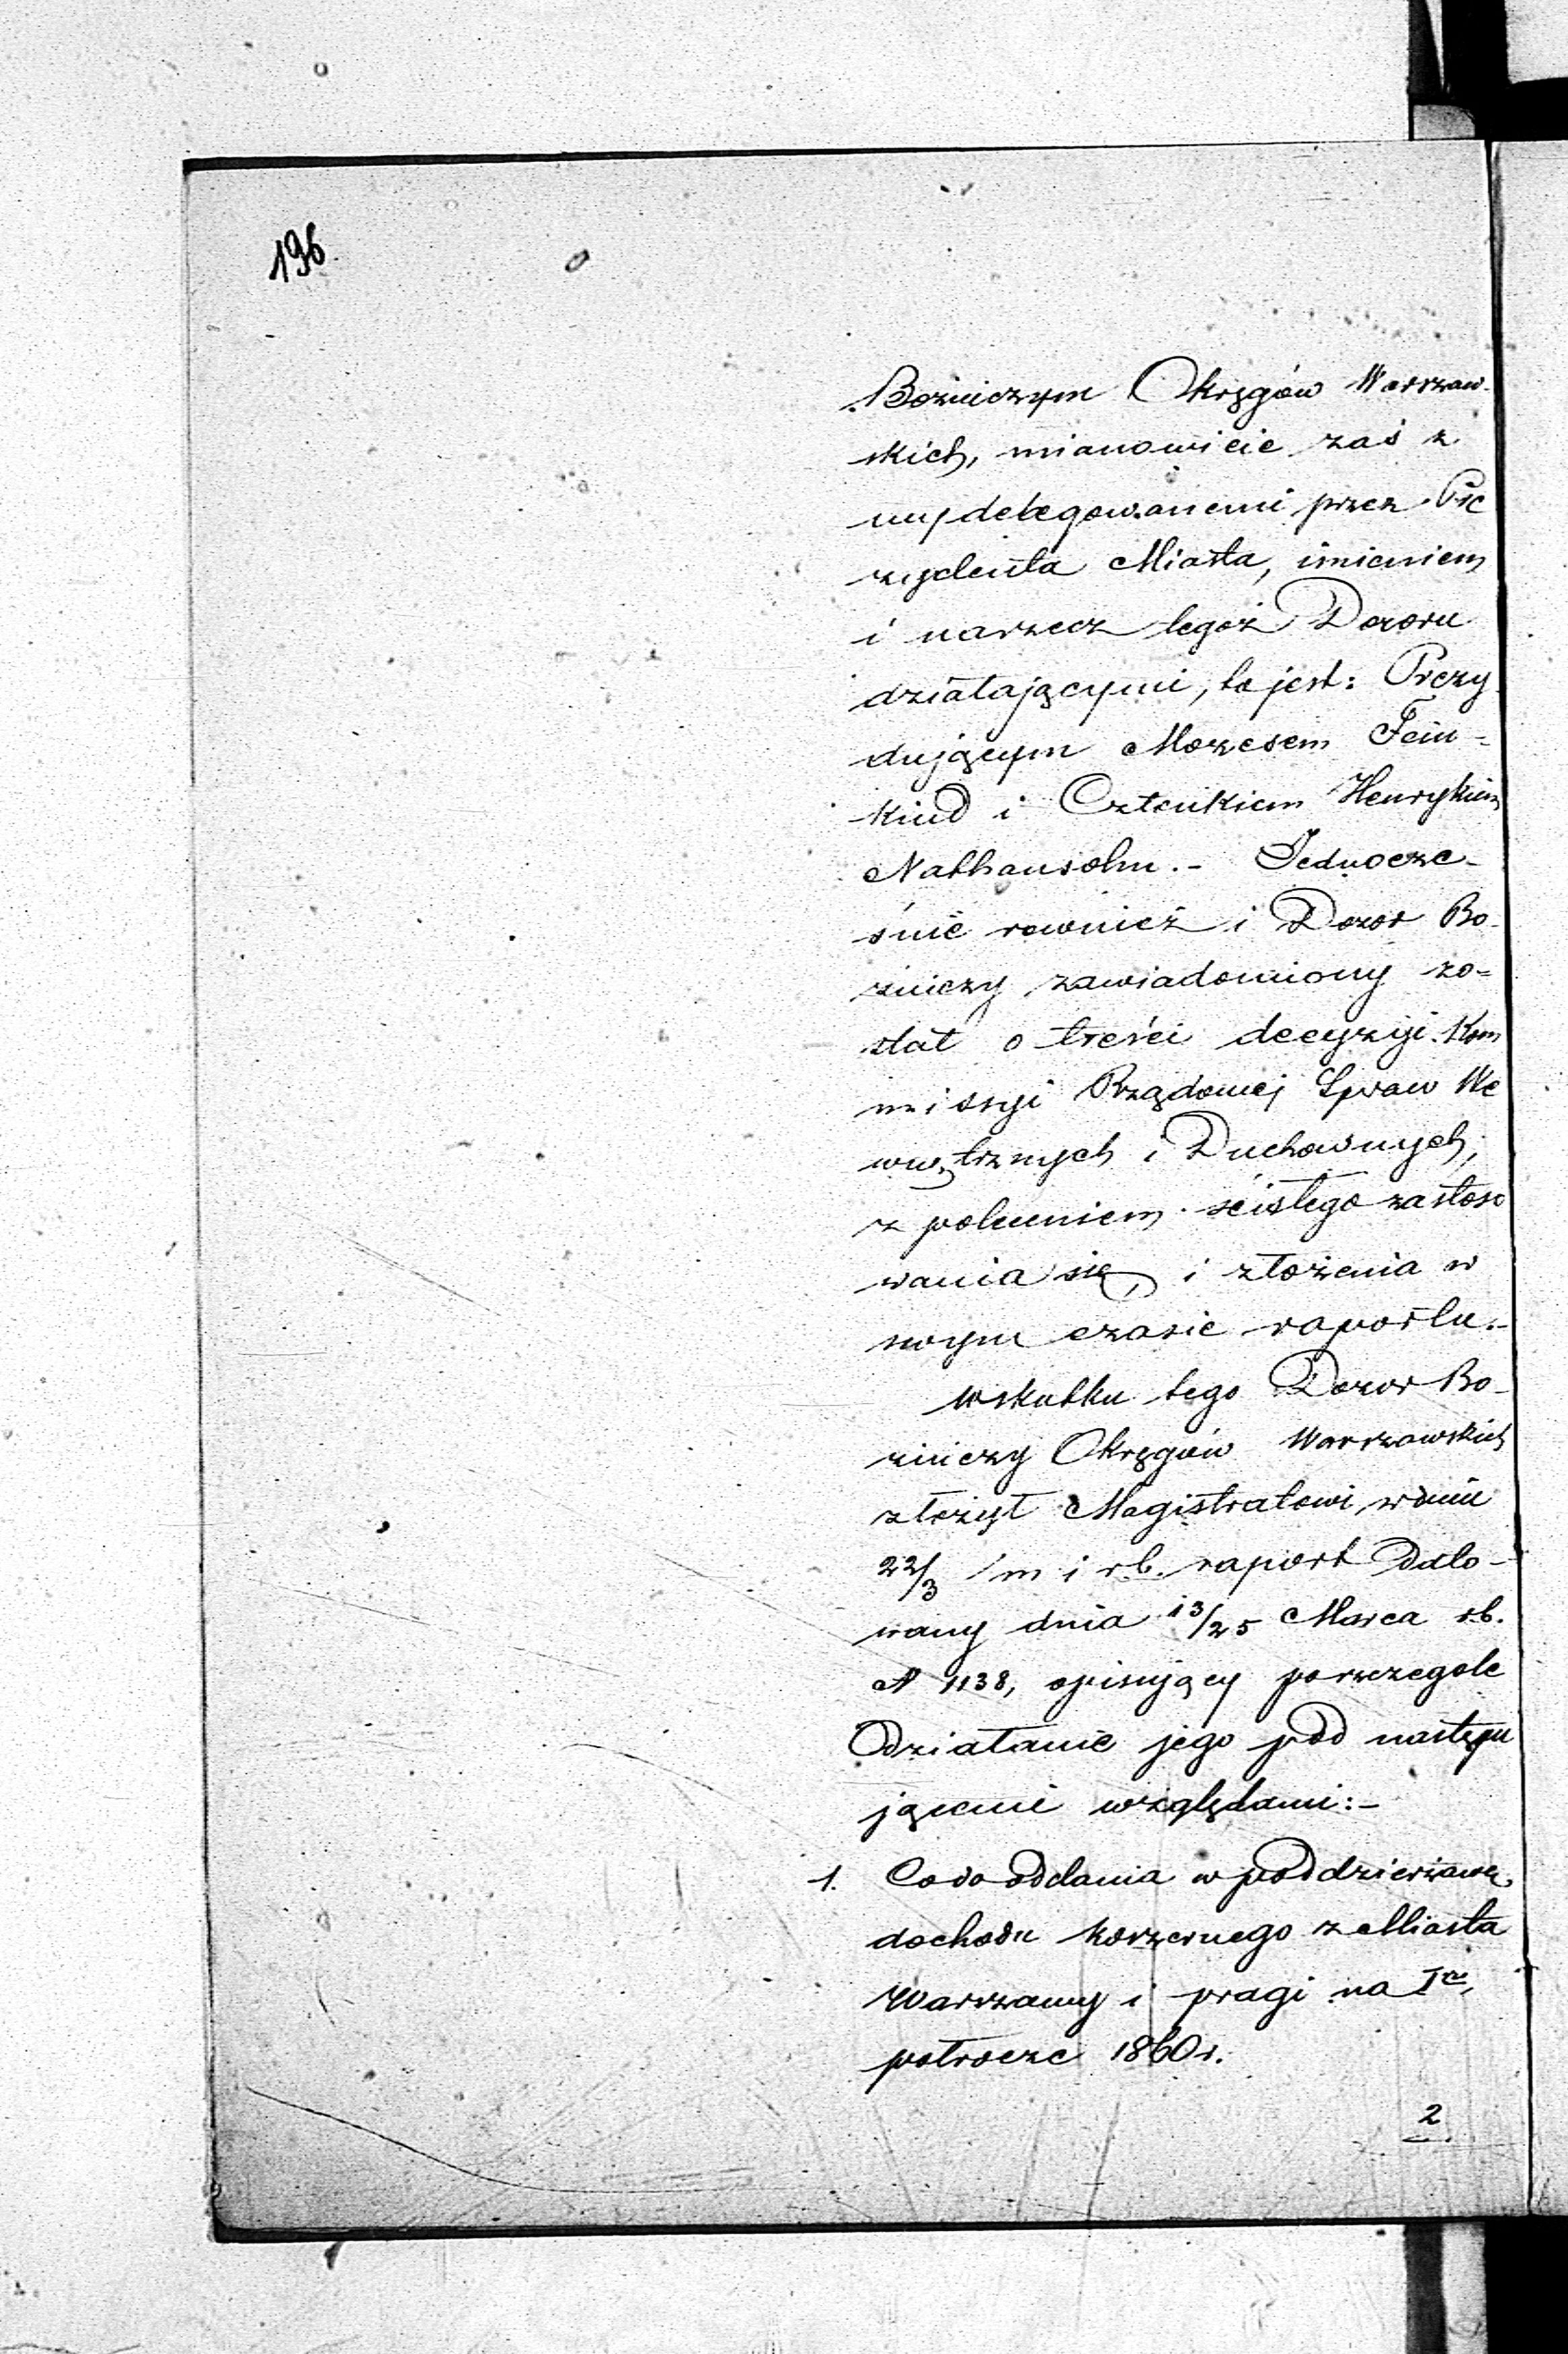 196
Bożniczym Okręgów Warszaw-
skich, mianowicie zaś z
wydelegowanemi przez Pre
zydenta Miasta, imieniem
i narzecz tegoż Dozoru
działającymi, to jest: Prezy
dującym Mozesem Fein-
kind i Członkiem Henrykiem
Nathansohn.- Jednocze-
śnie rownież i Dozor Bo-
żniczy zawiadomiony zo-
stał o treści decyzyi Kom
missyi Rządowej Spraw We
wnętrznych i Duchownych,
z poleceniem ścisłego zastoso
wania się, i złożenia w
swym czasie raportu.-
Wskutku tego Dozor Bo-
żniczy Okręgów Warszawskich
złożył Magistratowi w dniu
22/3 m i r.b. raport Dato-
wany dnia 13/25 Marca r.b.
N 1138, opisujący poszczegole
Działanie jego pod następu
jącemi względami:-
1. Co do oddania w poddzierżawę
dochodu koszernego z Miasta
Warszawy i pragi na Isze
połrocze 1860 r.
2